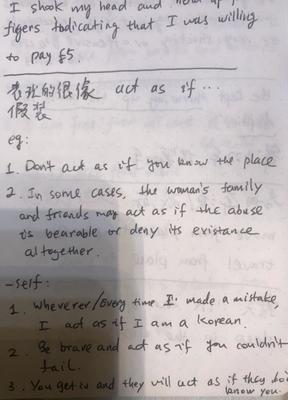 I shook my head and held up f
figers indicating that I was willing
to pay £5.
表现的很像 act as if ...
假装
eg:
1. Don't act as if you know the place
2. In some cases, the woman's family
and friends may act as if the abuse
is bearable or deny its existance
altogether.
-self:
1. Wheverer/Every time I made a mistake,
I act as if I am a Korean.
2. Be brave and act as if you couldn't
fail.
3. You get in and they will act as if they don
know you.